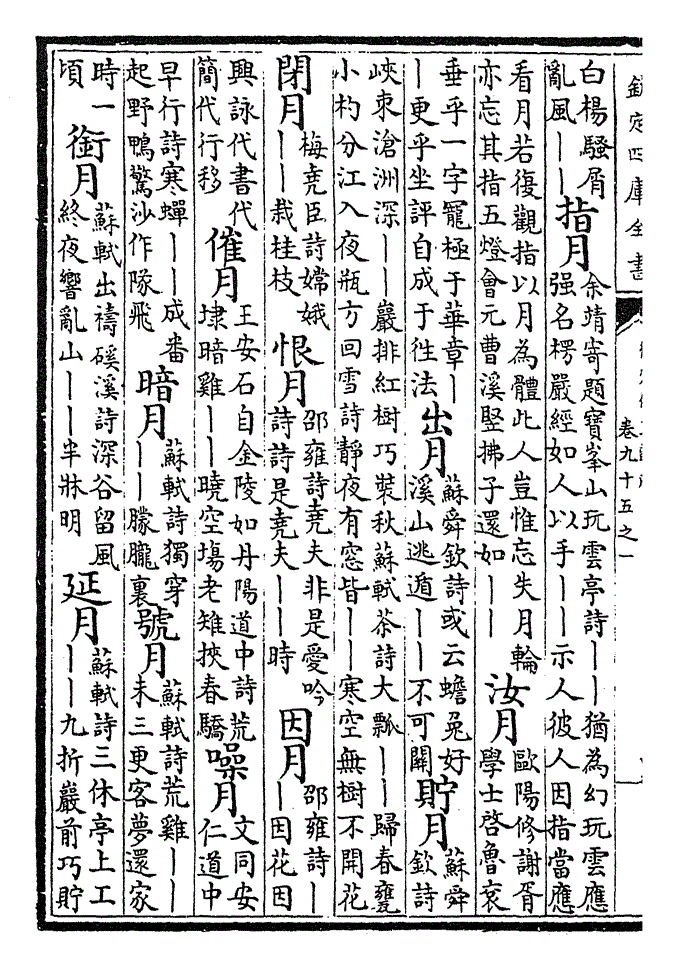 欽定四庫全書
卷九十五之一
白楊騷屑
亂風丨丨
指月
余靖寄題寶峯山玩雲亭詩丨丨猶為幻玩雲應
强名楞嚴經如人以手丨丨示人彼人因指當應
看月若復觀指以月為體此人豈惟忘失月輪
亦忘其指五燈會元曹溪竪拂子還如丨丨
汝月
歐陽修謝胥
學士啓魯哀
垂乎一字寵極于華章丨
丨更乎坐評自成于徃法
出月
蘇舜欽詩或云蟾兔好
溪山逃遁丨丨不可關
貯月
蘇舜
欽詩
峽束滄洲深丨丨嚴排紅樹巧裝秋蘇軾茶詩大瓢丨丨歸春甕
小杓分江入夜瓶方回雪詩靜夜有窓皆丨丨寒空無樹不開花
閉月
梅堯臣詩嫦娥
丨丨栽桂枝
恨月
邵雍詩堯夫非是愛吟
詩詩是堯夫丨丨時
因月
邵雍詩丨
丨因花因
興詠代書代
簡代行移
催月
王安石自金陵如丹陽道中詩荒
埭暗雞丨丨曉空塲老雉挾春驕
噪月
文同安
仁道中
早行詩寒蟬丨丨成番
起野鴨驚沙作隊飛
暗月
蘇軾詩獨穿
丨丨朦朧裏
號月
蘇軾詩荒雞丨丨
未三更客夢還家
時一
頃
銜月
蘇軾出禱磻溪詩深谷留風
終夜響亂山丨丨半牀明
延月
蘇軾詩三休亭上工
丨丨九折巖前巧貯